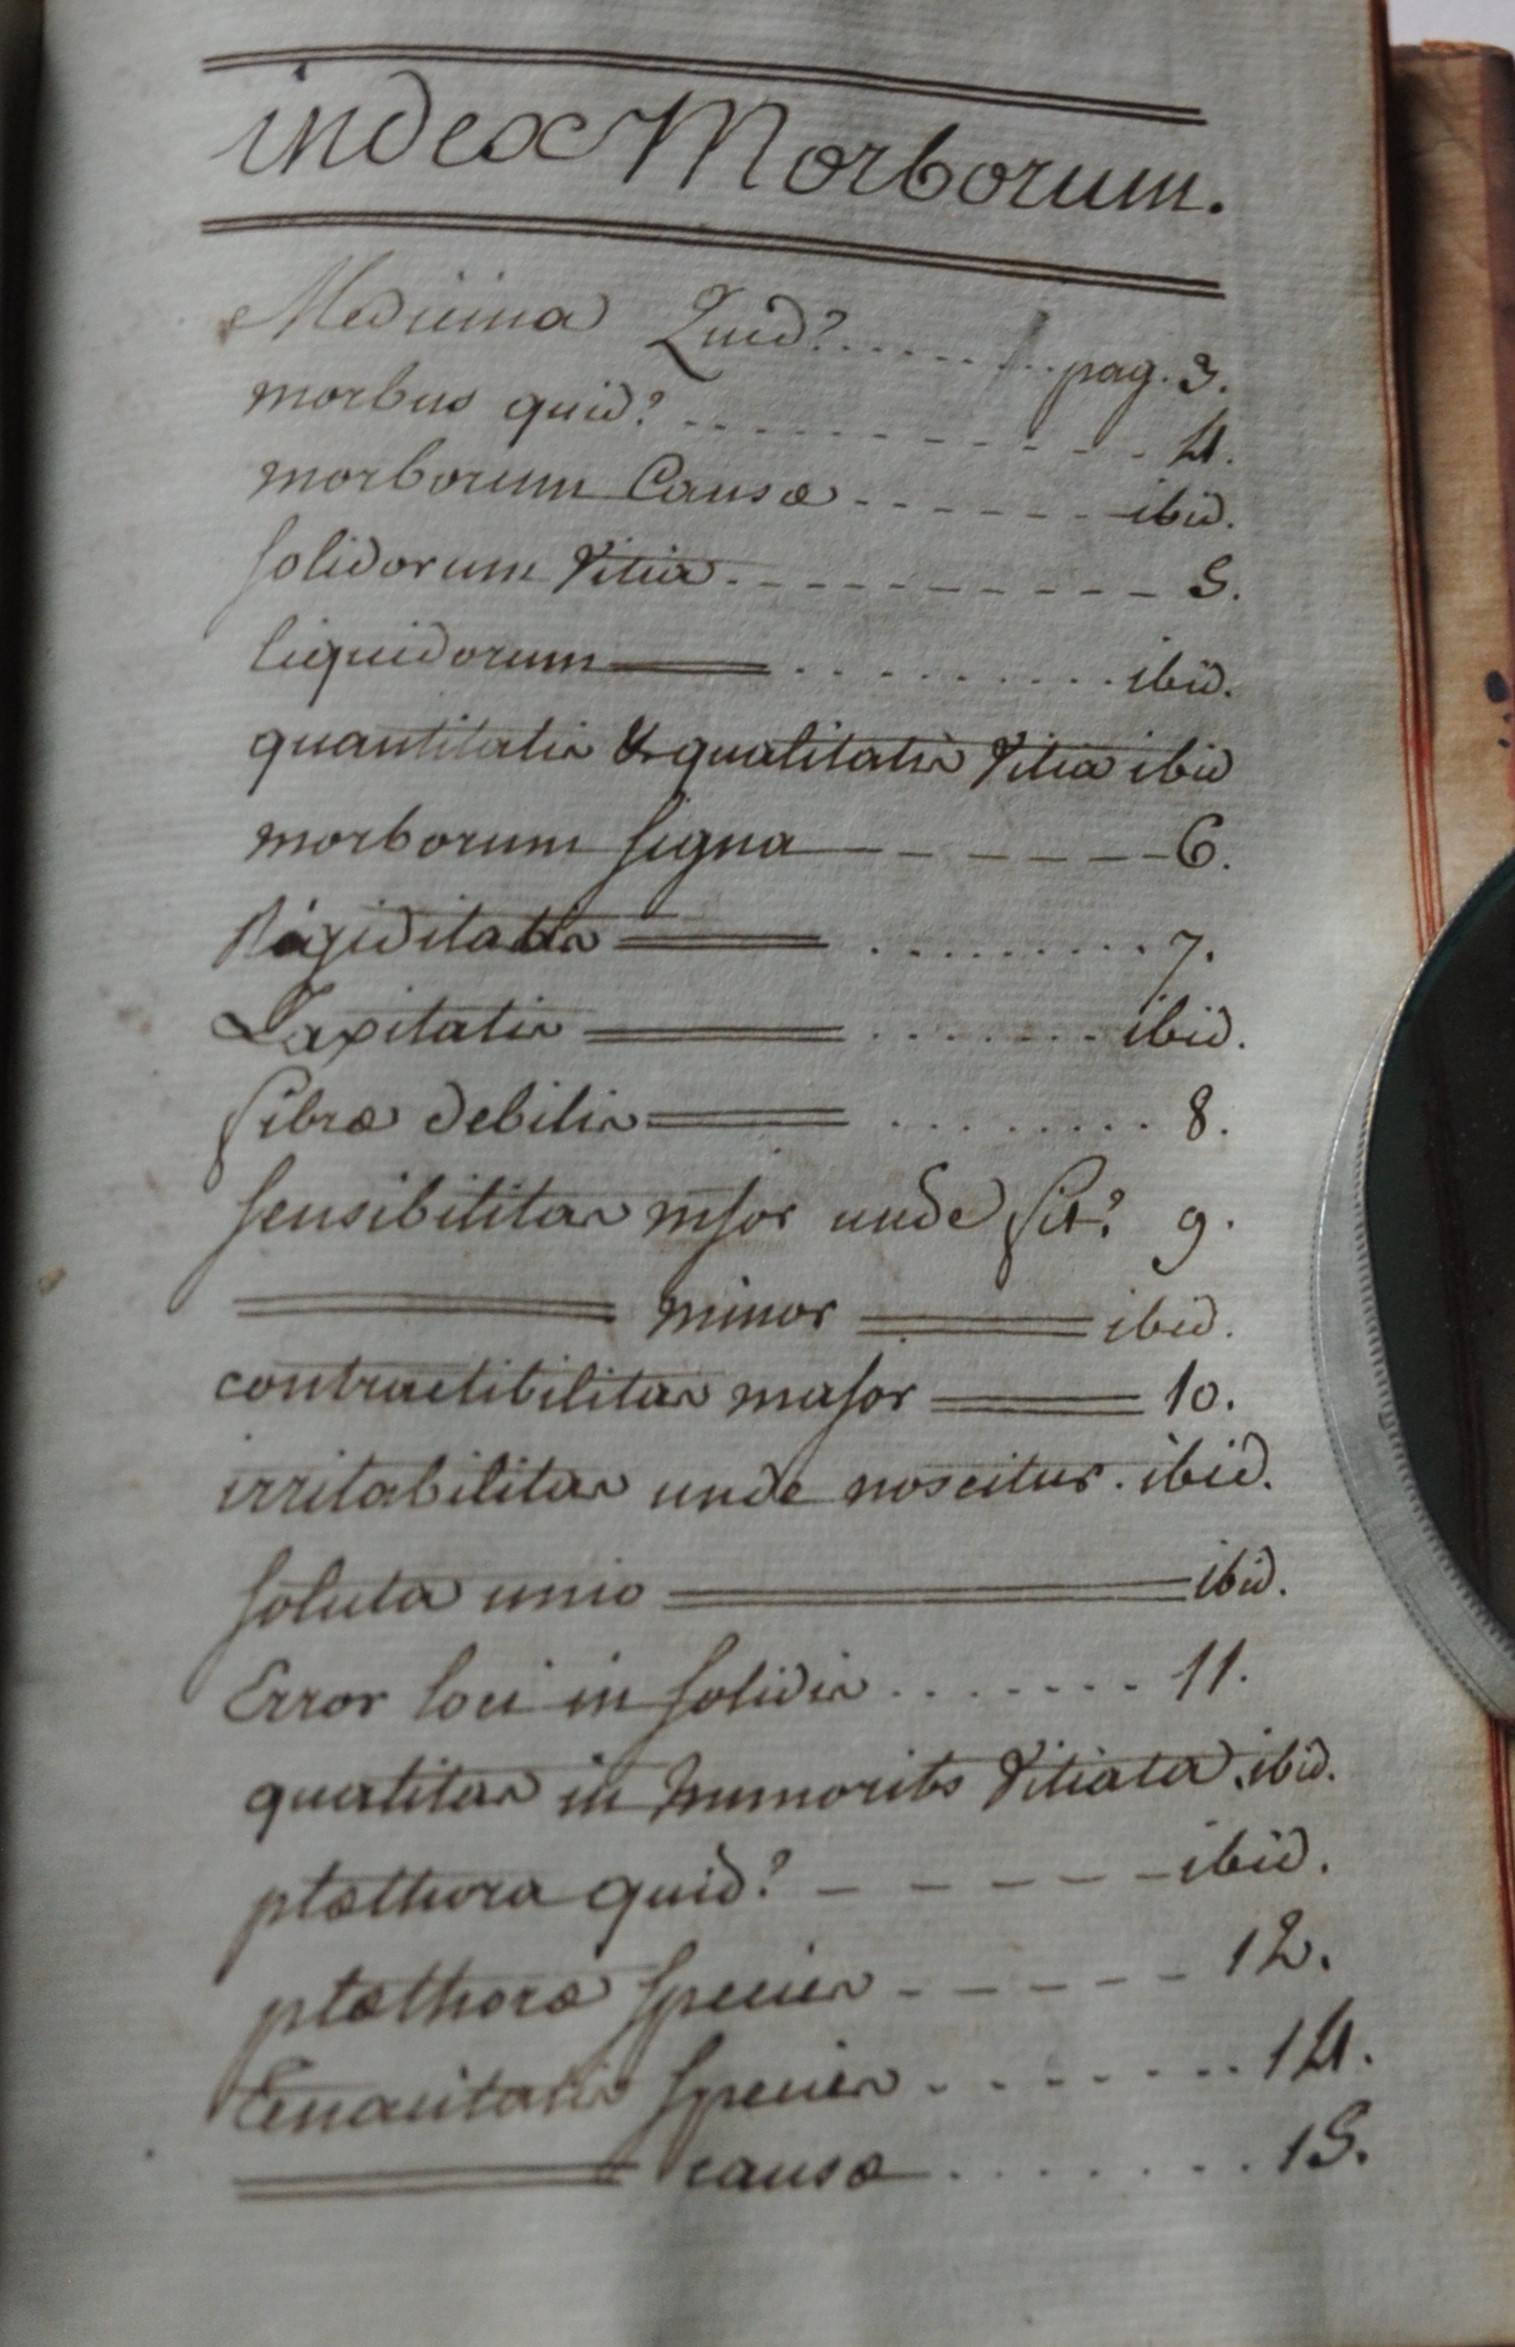 index Morborum.
Medicina Quid?...... pag. 3.
morbus quid?........... 4.
morborum Causæ....... ibid.
solidorum Vitia........... 5.
liquidorum ═ .......... ibid.
quantitatis & qualitatis Vitia ibid
morborum signa ------ 6.
Rigiditatis ═ ......... 7.
Laxitatis ═ ....... ibid.
fibræ debilis ═ ......... 8.
sensibilitas major unde fit? 9.
═ minor ═ ibid.
contractibilitas major ═ 10.
irritabilitas unde noscitur. ibid.
soluta unio ═ ibid.
Error loci in solidis....... 11.
qualitas in humoribs Vitiata. ibid.
plæthora quid? ----- ibid.
plæthoræ species ------ 12.
species....... 14.
═ causæ........ 15.